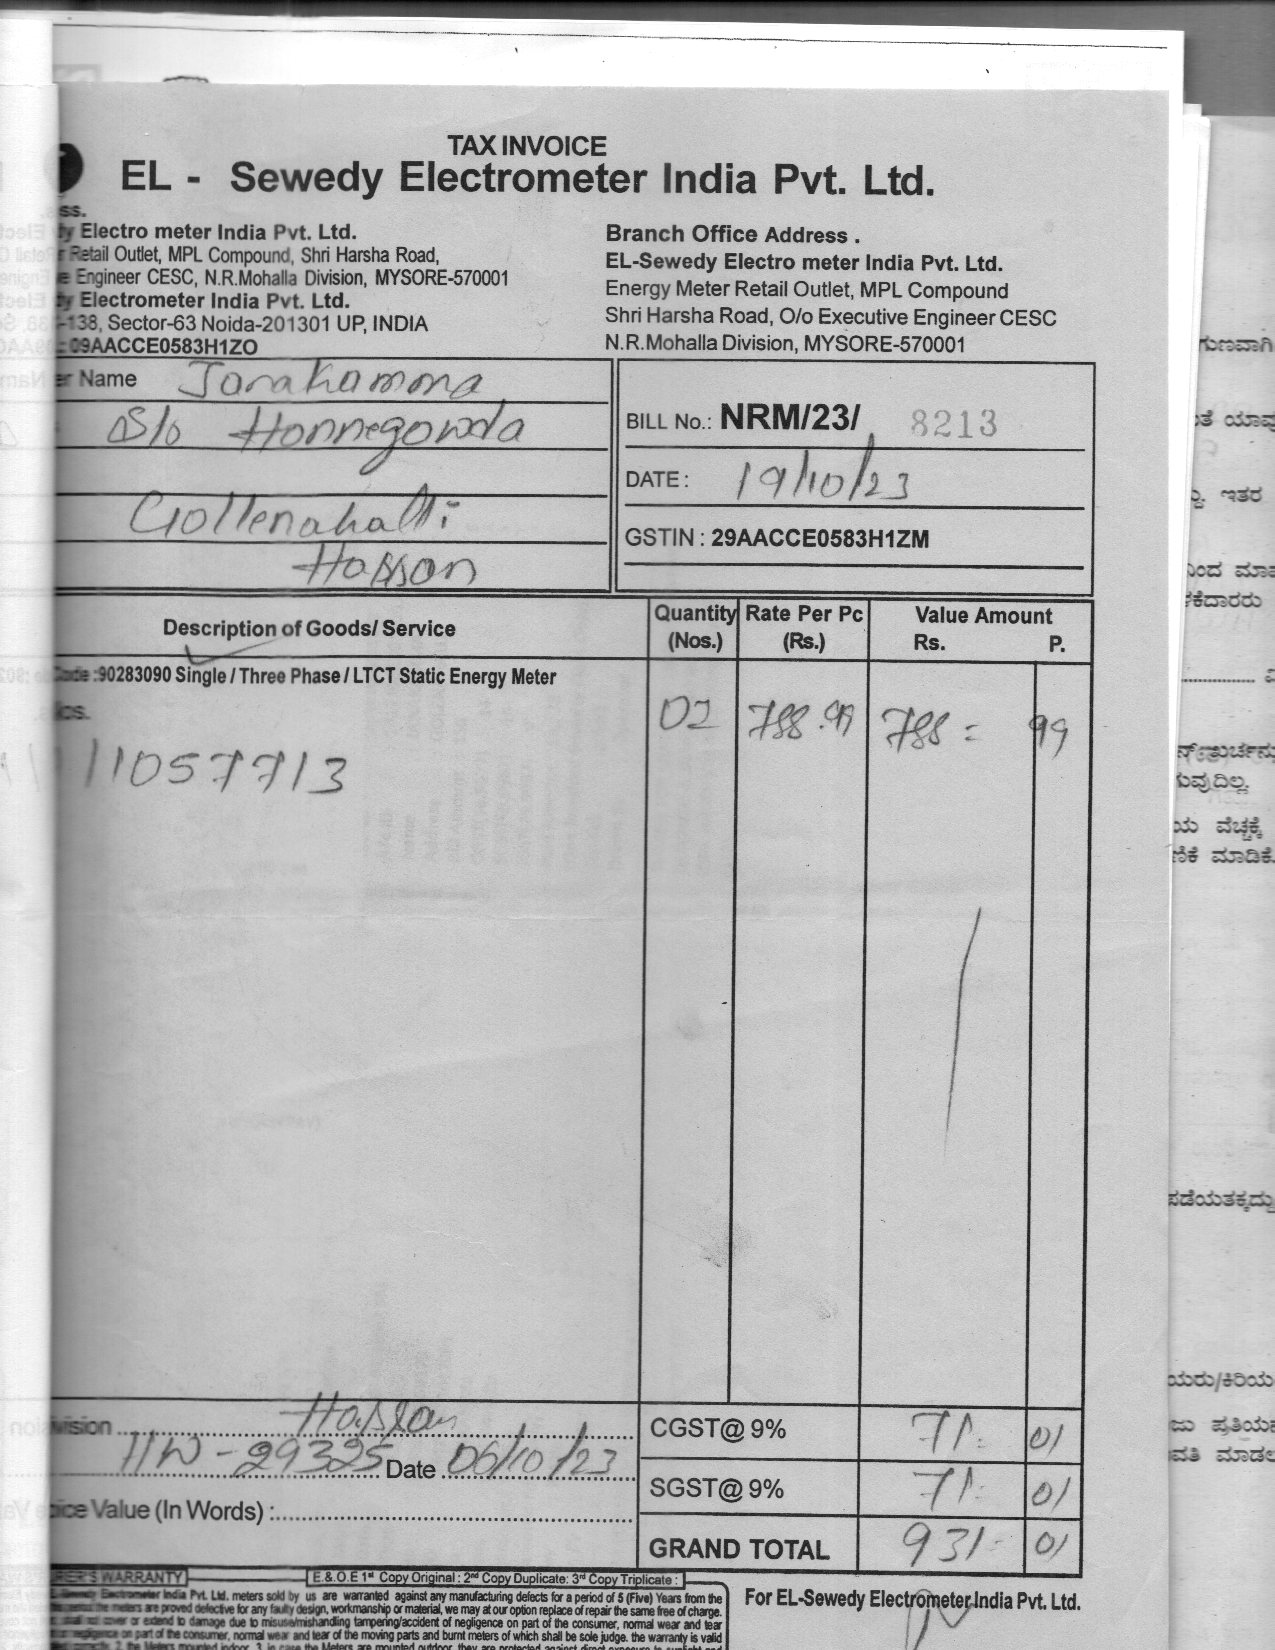 TAX INVOICE
EL - Sewedy Electrometer India Pvt. Ltd.
ss.
dy Electro meter India Pvt. Ltd.
r Retail Outlet, MPL Compound, Shri Harsha Road,
e Engineer CESC, N.R.Mohalla Division, MYSORE-570001
dy Electrometer India Pvt. Ltd.
-138, Sector-63 Noida-201301 UP, INDIA
: 09AACCE0583H1ZO
Branch Office Address .
EL-Sewedy Electro meter India Pvt. Ltd.
Energy Meter Retail Outlet, MPL Compound
Shri Harsha Road, O/o Executive Engineer CESC
N.R.Mohalla Division, MYSORE-570001
er Name Jarakamma
S/o Honnegowda
Gollenahalli
Hassan
BILL No.: NRM/23/ 8213
DATE : 19/10/23
GSTIN : 29AACCE0583H1ZM
Description of Goods/ Service
Quantity (Nos.)
Rate Per Pc (Rs.)
Value Amount
Rs. P.
Code :90283090 Single / Three Phase / LTCT Static Energy Meter
Nos.
11057713
788.99 788 = 99
ivision Hassan
HW-29325 Date 06/10/23
oice Value (In Words) :
CGST@ 9% 71. 01
SGST@ 9% 71. 01
GRAND TOTAL 931- 01
RER'S WARRANTY
E.& O.E 1st Copy Original : 2nd Copy Duplicate: 3rd Copy Triplicate :
Sewedy Electrometer India Pvt. Ltd. meters sold by us are warranted against any manufacturing defects for a period of 5 (Five) Years from the
the meters are proved defective for any faulty design, workmanship or material, we may at our option replace of repair the same free of charge.
shall not cover or extend to damage due to misuse/mishandling tampering/accident of negligence on part of the consumer, normal wear and tear
or negligence on part of the consumer, normal wear and tear of the moving parts and burnt meters of which shall be sole judge. the warranty is valid
For EL-Sewedy Electrometer India Pvt. Ltd.
ಗುಣವಾಗಿ
ತೆ ಯಾವು
ಇತರ
ನಿಂದ ಮಾಪ
ಕೆದಾರರು
ುವುದಿಲ್ಲ.
ಯ ವೆಚ್ಚಕ್ಕೆ
ಣಿಕೆ ಮಾಡಿಕೆ
ಪಡೆಯತಕ್ಕದ್ದು
ಯರು/ಕಿರಿಯ
ಜು ಪ್ರತಿಯ
ಾವತಿ ಮಾಡಲ